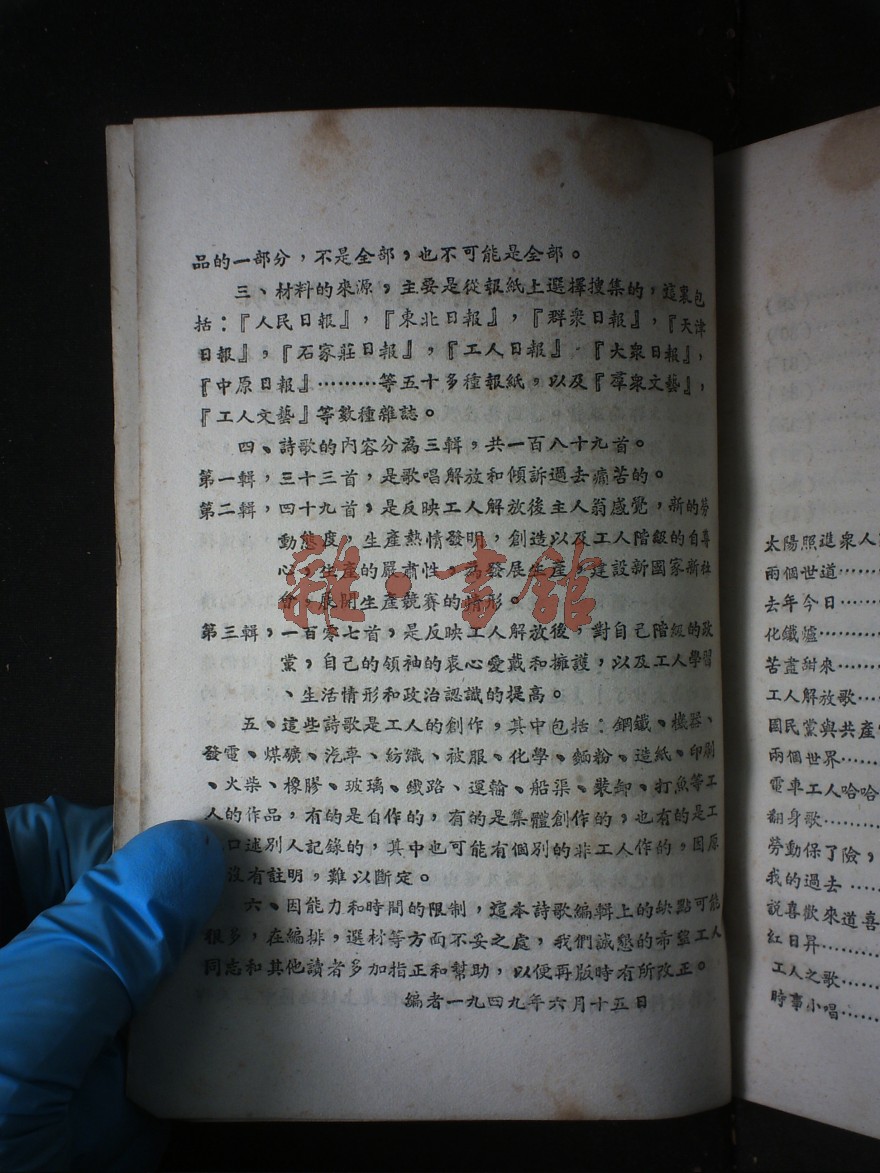 品的一部分，不是全部，也不可能是全部。
三、材料的來源，主要是從報紙上選擇搜集的，這裏包
括：『人民日報』，『東北日報』，『群衆日報』，『天津
日報』，『石家莊日報』，『工人日報』『大衆日報』，
『中原日報』………等五十多種報紙，以及『羣衆文藝』，
『工人文藝』等數種雜誌。
四、詩歌的內容分為三輯，共一百八十九首。
第一輯，三十三首，是歌唱解放和傾訴過去痛苦的。
第二輯，四十九首，是反映工人解放後主人翁感覺，新的勞
動態度，生產熱情發明，創造以及工人階級的自尊
心，生產的嚴肅性，為發展生產，建設新國家新社
會，展開生產競賽的情形。
第三輯，一百零七首，是反映工人解放後，對自己階級的政
黨，自己的領袖的衷心愛戴和擁護，以及工人學習
、生活情形和政治認識的提高。
五、這些詩歌是工人的創作，其中包括：鋼鐵、機器、
發電、煤礦、汽車、紡織、被服、化學、麵粉、造紙、印刷
、火柴、橡膠、玻璃、鐵路、運輸、船渠、裝卸、打魚等工
人的作品，有的是自作的，有的是集體創作的，也有的是工
口述別人記錄的，其中也可能有個別的非工人作的，因原
沒有註明，難以斷定。
六、因能力和時間的限制，這本詩歌編輯上的缺點可能
很多，在編排，選材等方面不妥之處，我們誠懇的希望工人
同志和其他讀者多加指正和幫助，以便再版時有所改正。
編者一九四九年六月十五日
雜·書館
太陽照進衆人
兩個世道……
去年今日……
化鐵爐………
苦盡甜來……
工人解放歌…
國民黨與共產
兩個世界……
電車工人哈哈
翻身歌………
勞動保了險，
我的過去……
説喜歡來道喜
紅日昇………
工人之歌……
時事小唱……